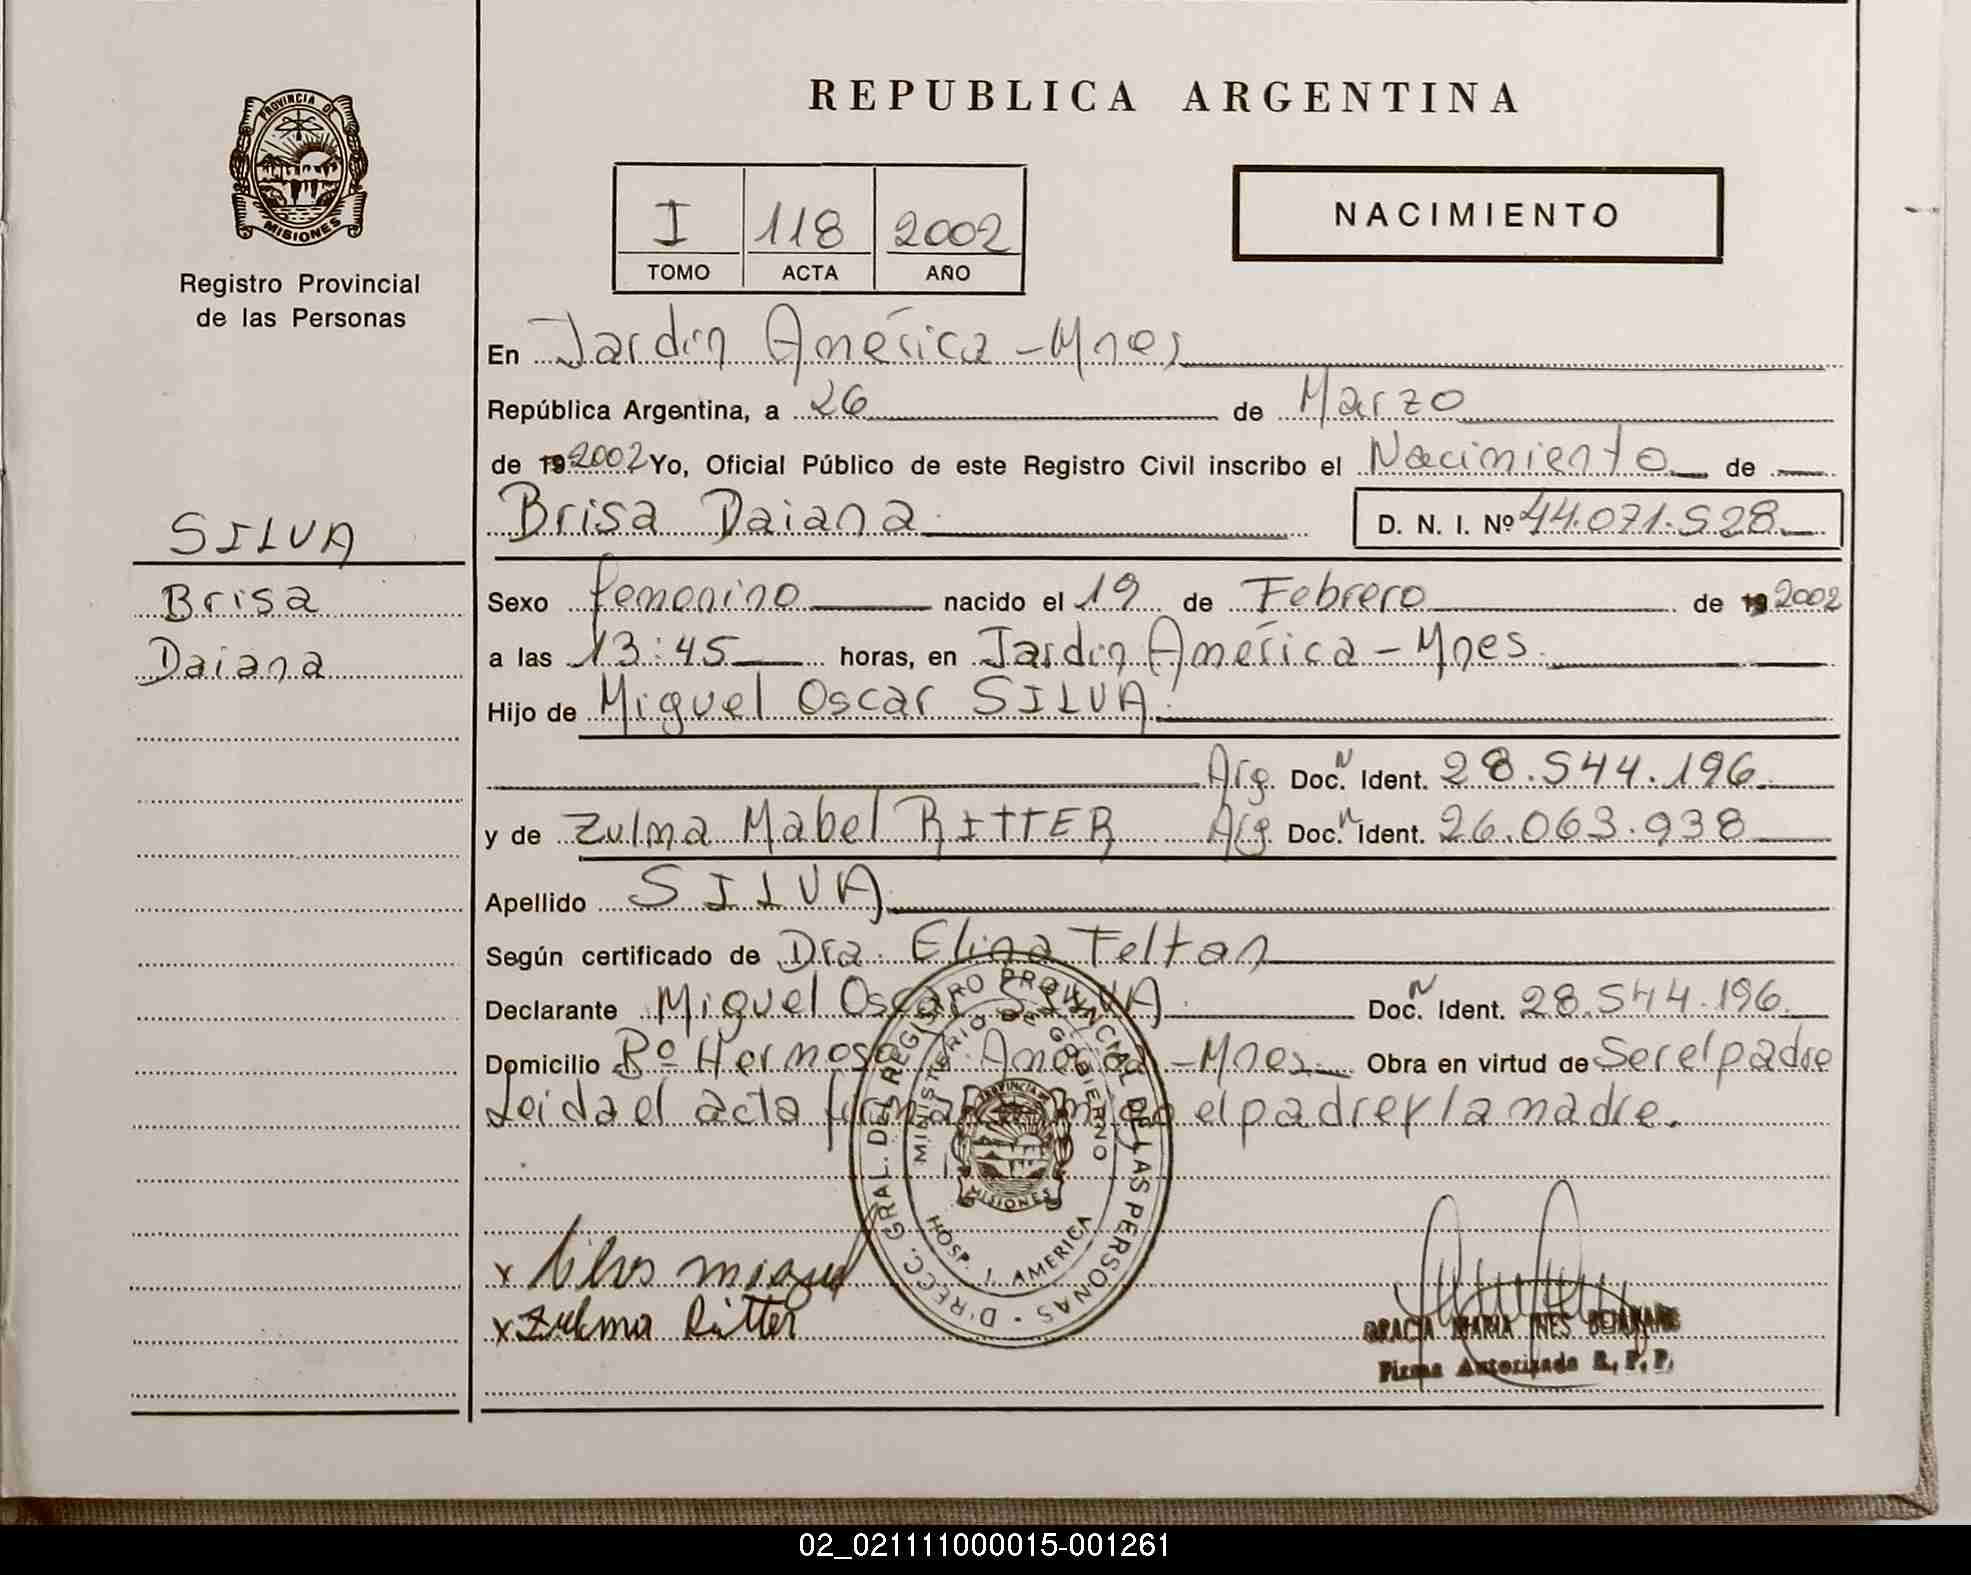 REPUBLICA ARGENTINA
PROVINCIA DE
MISIONES
Registro Provincial
de las Personas
I 118 2002
TOMO ACTA AÑO
NACIMIENTO
En Jardín América - Mnes
República Argentina, a 26 de Marzo
de 19 2002 Yo, Oficial Público de este Registro Civil inscribo el Nacimiento de
Brisa Daiana D. N. I. Nº 44.071.528
SILVA
Brisa
Daiana
Sexo femenino nacido el 19 de Febrero de 19 2002
a las 13:45 horas, en Jardín América - Mnes.
Hijo de Miguel Oscar SILVA
Arg. Doc. N Ident. 28.544.196
y de Zulma Mabel RITTER Arg. Doc. N Ident. 26.063.938
Apellido SILVA
Según certificado de Dra. Elina Feltan
Declarante Miguel Oscar SILVA Doc. N Ident. 28.544.196
Domicilio Bº Hermoso J. América - Mnes Obra en virtud de Ser el padre
Leida el acta el padre y la madre.
DIRECC. GRAL. DEL REGISTRO PROVINCIAL DE LAS PERSONAS
MINISTERIO DE GOBIERNO
PROVINCIA DE
MISIONES
HOSP. J. AMERICA
x Silva Miguel
x Zulma Ritter
GRACIA MARIA INES
Firma Autorizada R. P. P.
02_021111000015-001261